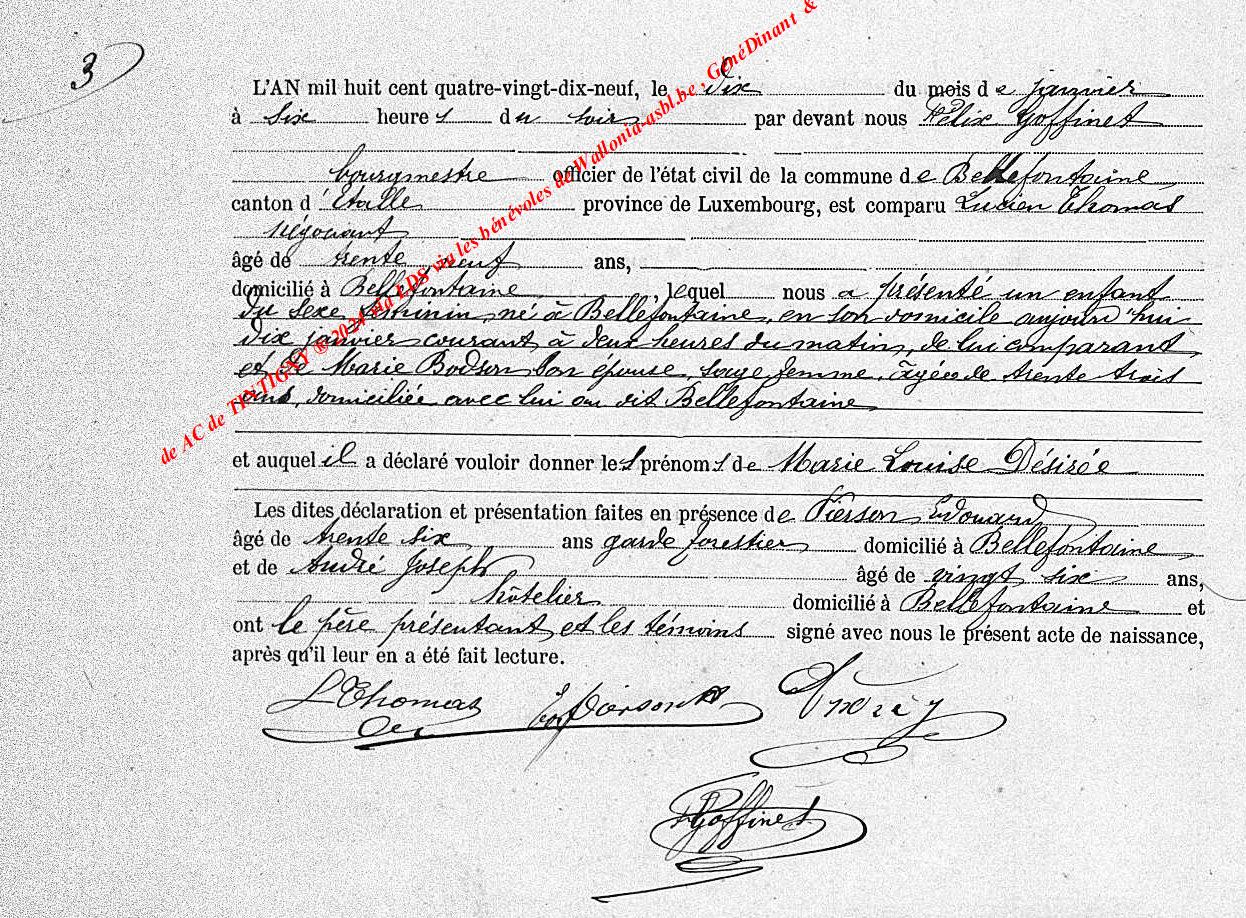 3
L'AN mil huit cent quatre-vingt-dix-neuf, le dix du mois de janvier
à six heures du soir par devant nous Félix Goffinet
bourgmestre officier de l'état civil de la commune de Bellefontaine
canton d'Etalle province de Luxembourg, est comparu Lucien Thomas
négociant
âgé de trente neuf ans,
domicilié à Bellefontaine, lequel nous a présenté un enfant
du sexe féminin, né à Bellefontaine, en son domicile aujourd'hui
dix janvier courant, à deux heures du matin, de lui comparant
et de Marie Bodson son épouse, sage femme, âgée de trente trois
ans, domiciliée avec lui au dit Bellefontaine
et auquel il a déclaré vouloir donner les prénoms de Marie Louise Désirée
Les dites déclaration et présentation faites en présence de Pierson Edouard
âgé de trente six ans garde forestier domicilié à Bellefontaine
et de André Joseph âgé de vingt six ans,
hôtelier domicilié à Bellefontaine et
ont le père présentant et les témoins signé avec nous le présent acte de naissance,
après qu'il leur en a été fait lecture.
L Thomas Pierson André
F Goffinet
de AC de TINTIGNY ® 2024 via LDS via les bénévoles de Wallonia-asbl.be, GénéDinant &